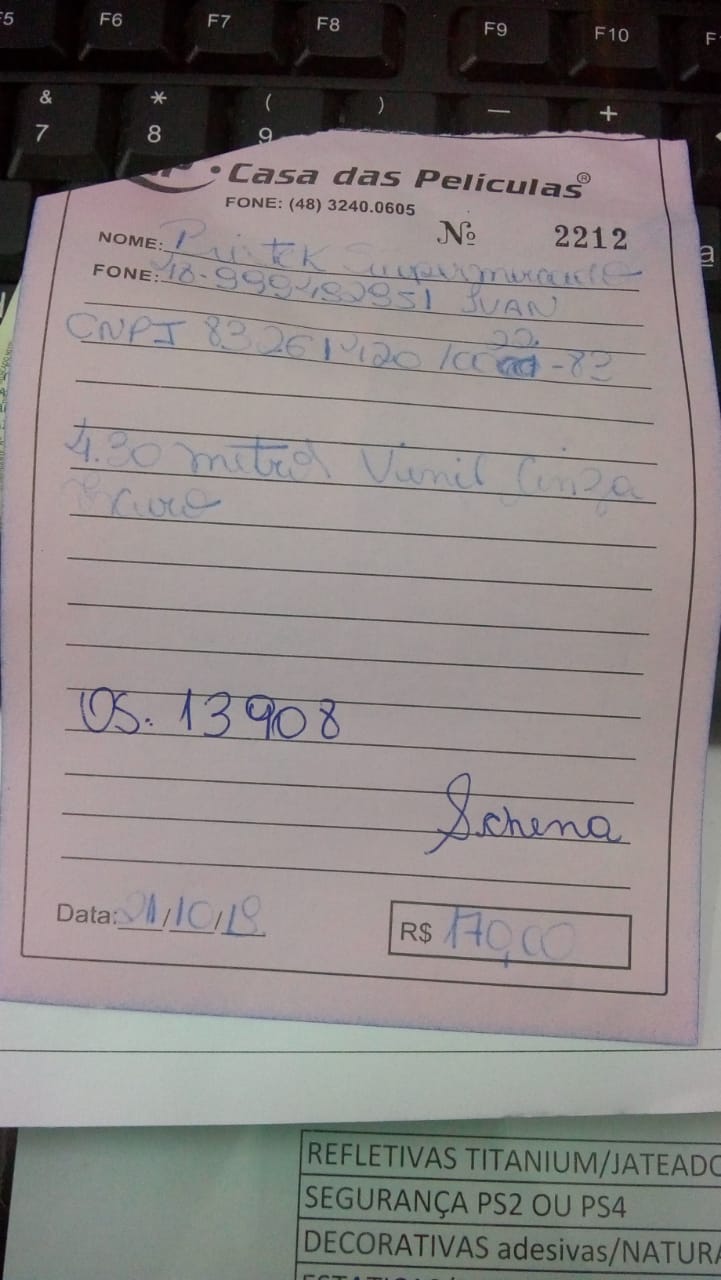 F5 F6 F7 F8 F9 F10
& * ( ) — +
7 8 9
Casa das Películas®
FONE: (48) 3240.0605
Nº 2212
NOME: Printek
FONE: 48-999492951 JUAN
22
CNPJ 83261420/00 -83
4.30 metros Vinil Cinza
Escuro
OS. 13908
Schena
Data: 21/10/19 R$ 170,00
REFLETIVAS TITANIUM/JATEADO
SEGURANÇA PS2 OU PS4
DECORATIVAS adesivas/NATURA